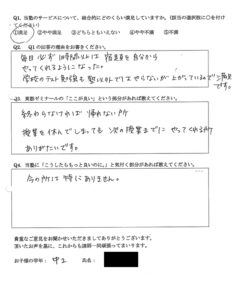 Q1. 当塾のサービスについて、総合的にどのくらい満足していますか。(該当の選択肢に○を付けてください)
①満足 ②やや満足 ③どちらともいえない ④やや不満 ⑤不満
Q2. Q1の回答の理由をお書きください。
毎日 必ず 1時間以上は 勉強を自分から
やってくれるようになった。
学校のテスト勉強も 塾以外で
上がっている
満足です。
Q3. 東数ゼミナールの「ここが良い」という部分があれば教えてください。
終わらなければ 帰れない所
授業を休んでしまっても 次の授業までに やってくれる所
ありがたいです。
Q4. 当塾に「こうしたらもっと良いのに。」と気付く部分があれば教えてください。
今の所は 特に ありません。
貴重なご意見をお聞かせいただきましてありがとうございます。
頂いたお声を基に、これからも講師一同頑張ってまいります。
お子様の学年: 中2 氏名: